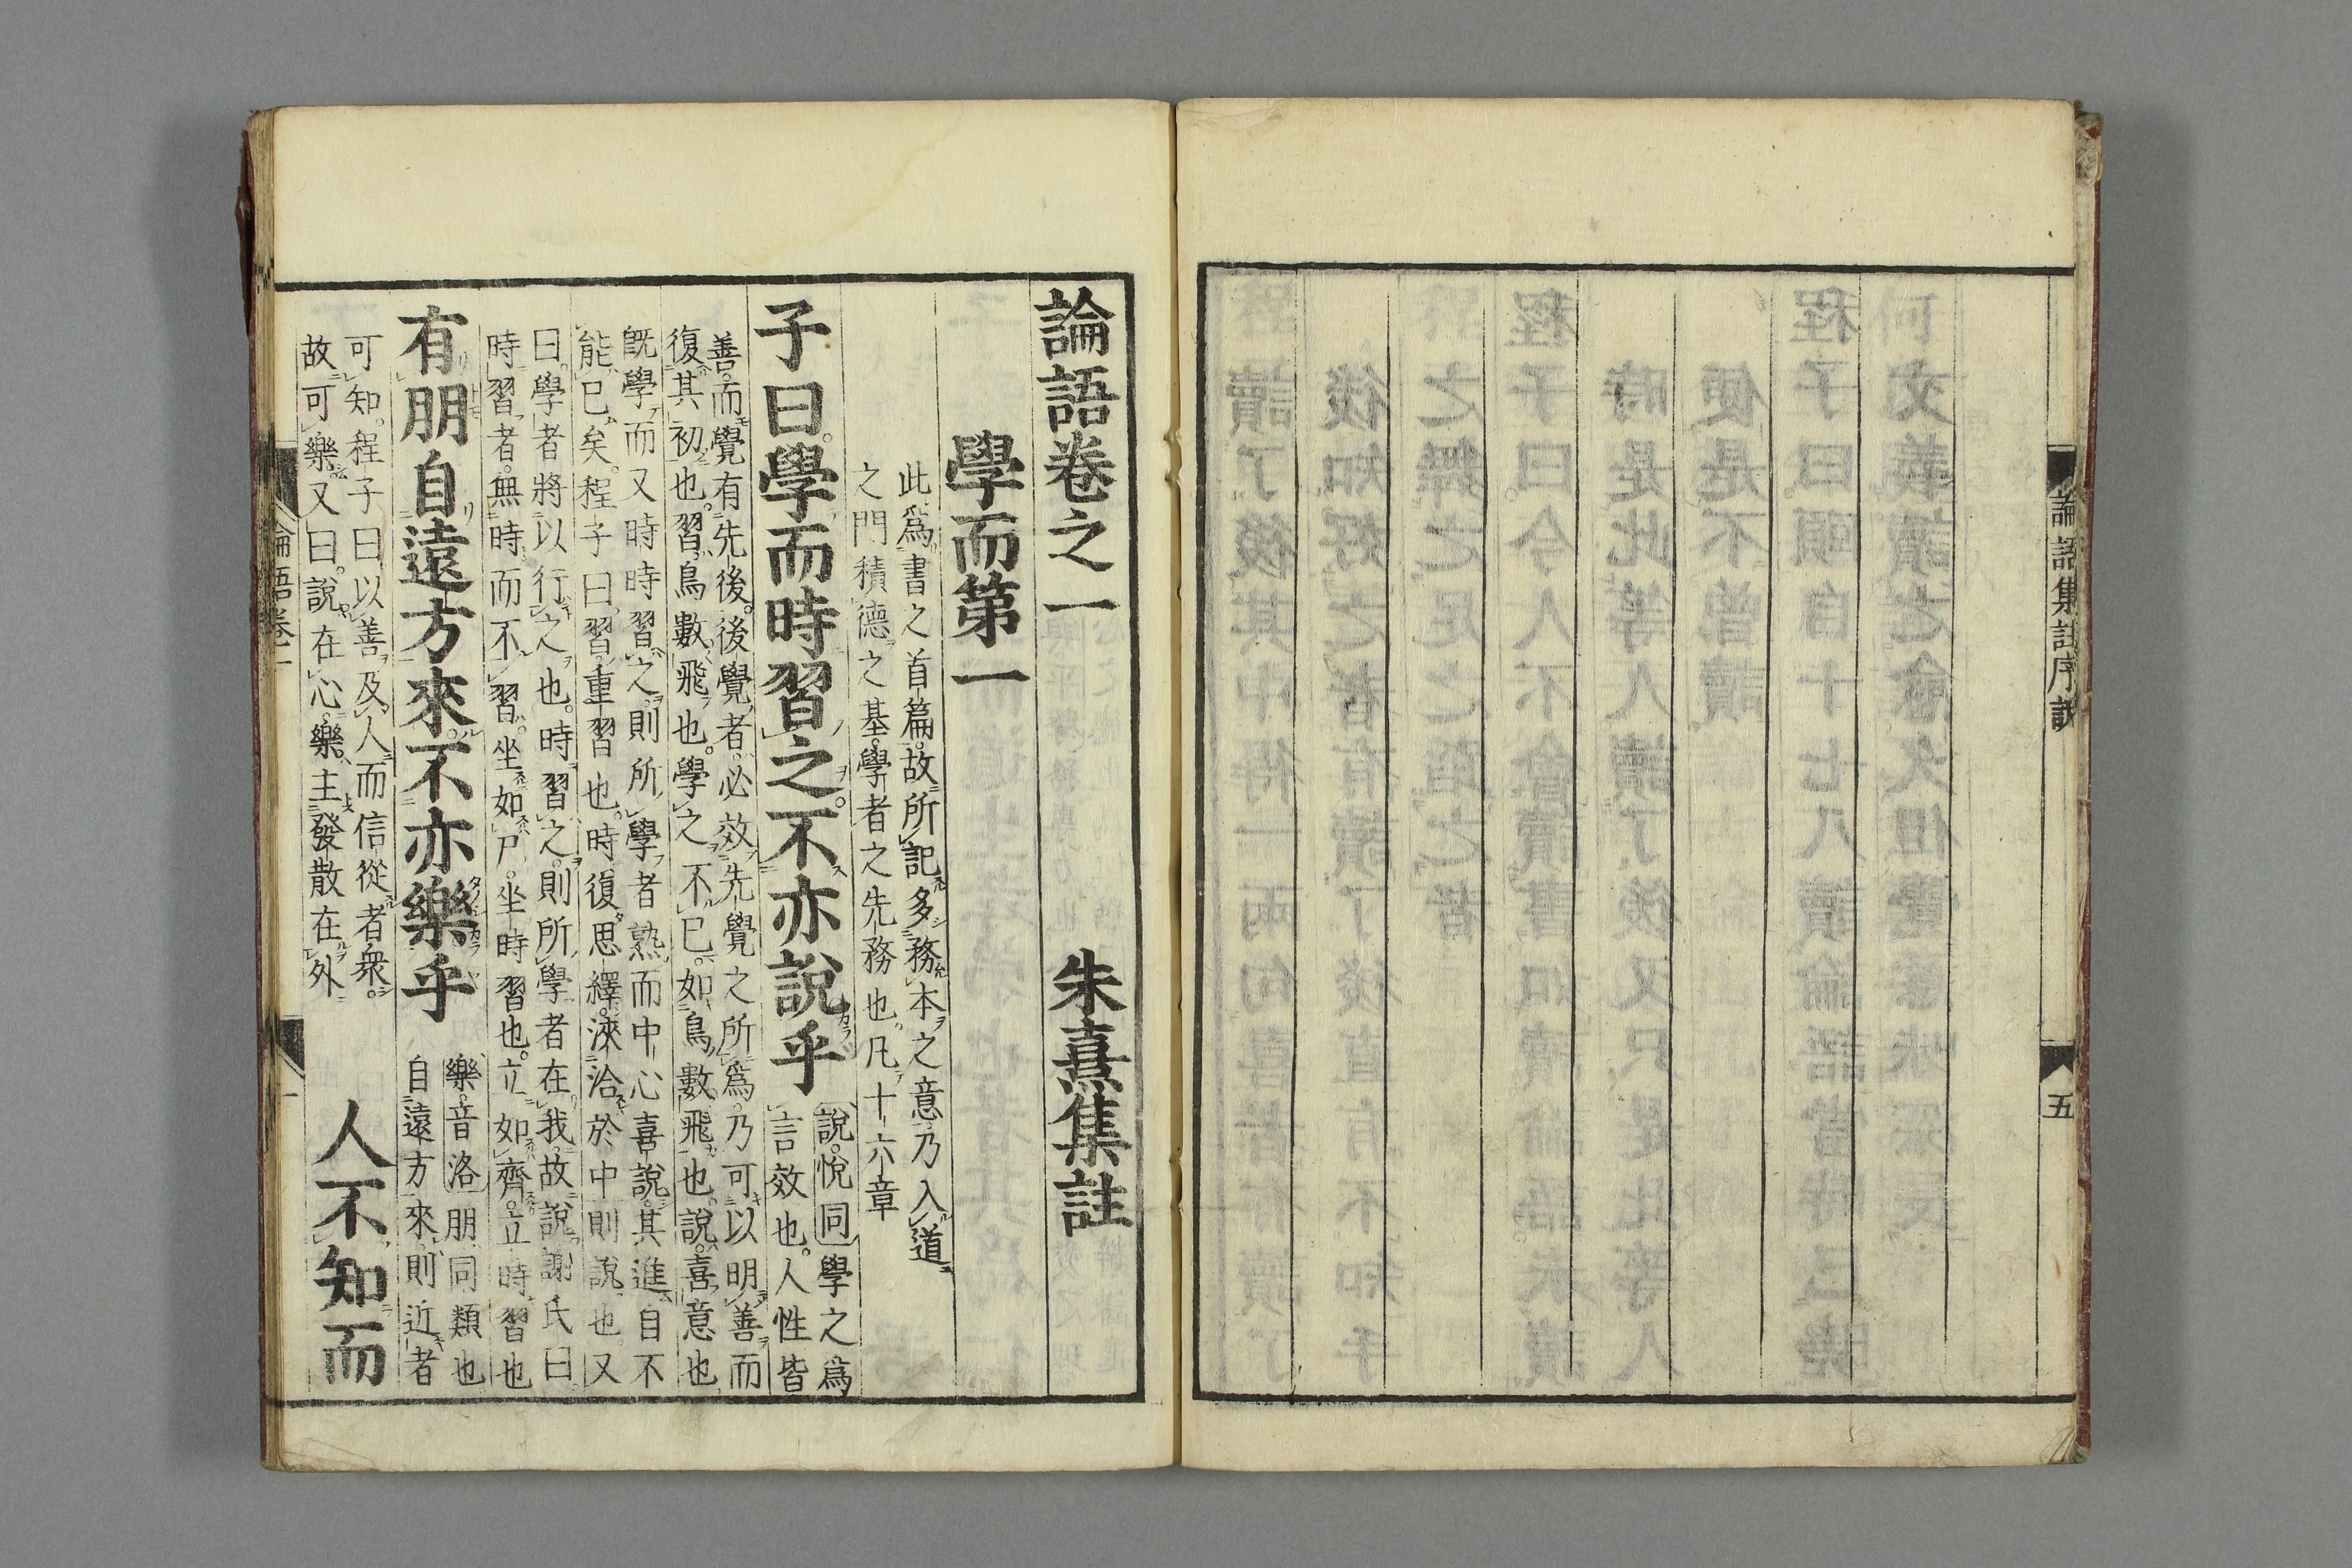 論語集註序說
五
論語卷之一
朱熹集註
學而第一
此爲書之首篇。故所記多務本之意。乃入道
之門。積德之基。學者之先務也。凡十六章
子曰。學而時習之。不亦說乎
說。悅同。學之爲
言效也。人性皆
善。而覺有先後。後覺者。必效先覺之所爲。乃可以明善而
復其初也。習。鳥數飛也。學之不已。如鳥數飛也。說。喜意也
旣學而又時時習之。則所學者熟。而中心喜說。其進自不
能已矣。程子曰。習。重習也。時復思繹。浹洽於中。則說也。又
曰。學者將以行之也。時習之。則所學者在我。故說。謝氏曰
時習者。無時而不習。坐如尸。坐時習也。立如齊。立時習也
有朋自遠方來。不亦樂乎
樂。音洛。朋同類也
自遠方來。則近者
可知。程子曰。以善及人。而信從者衆。
故可樂。又曰。說在心。樂主發散在外
人不知而
論語卷一
一